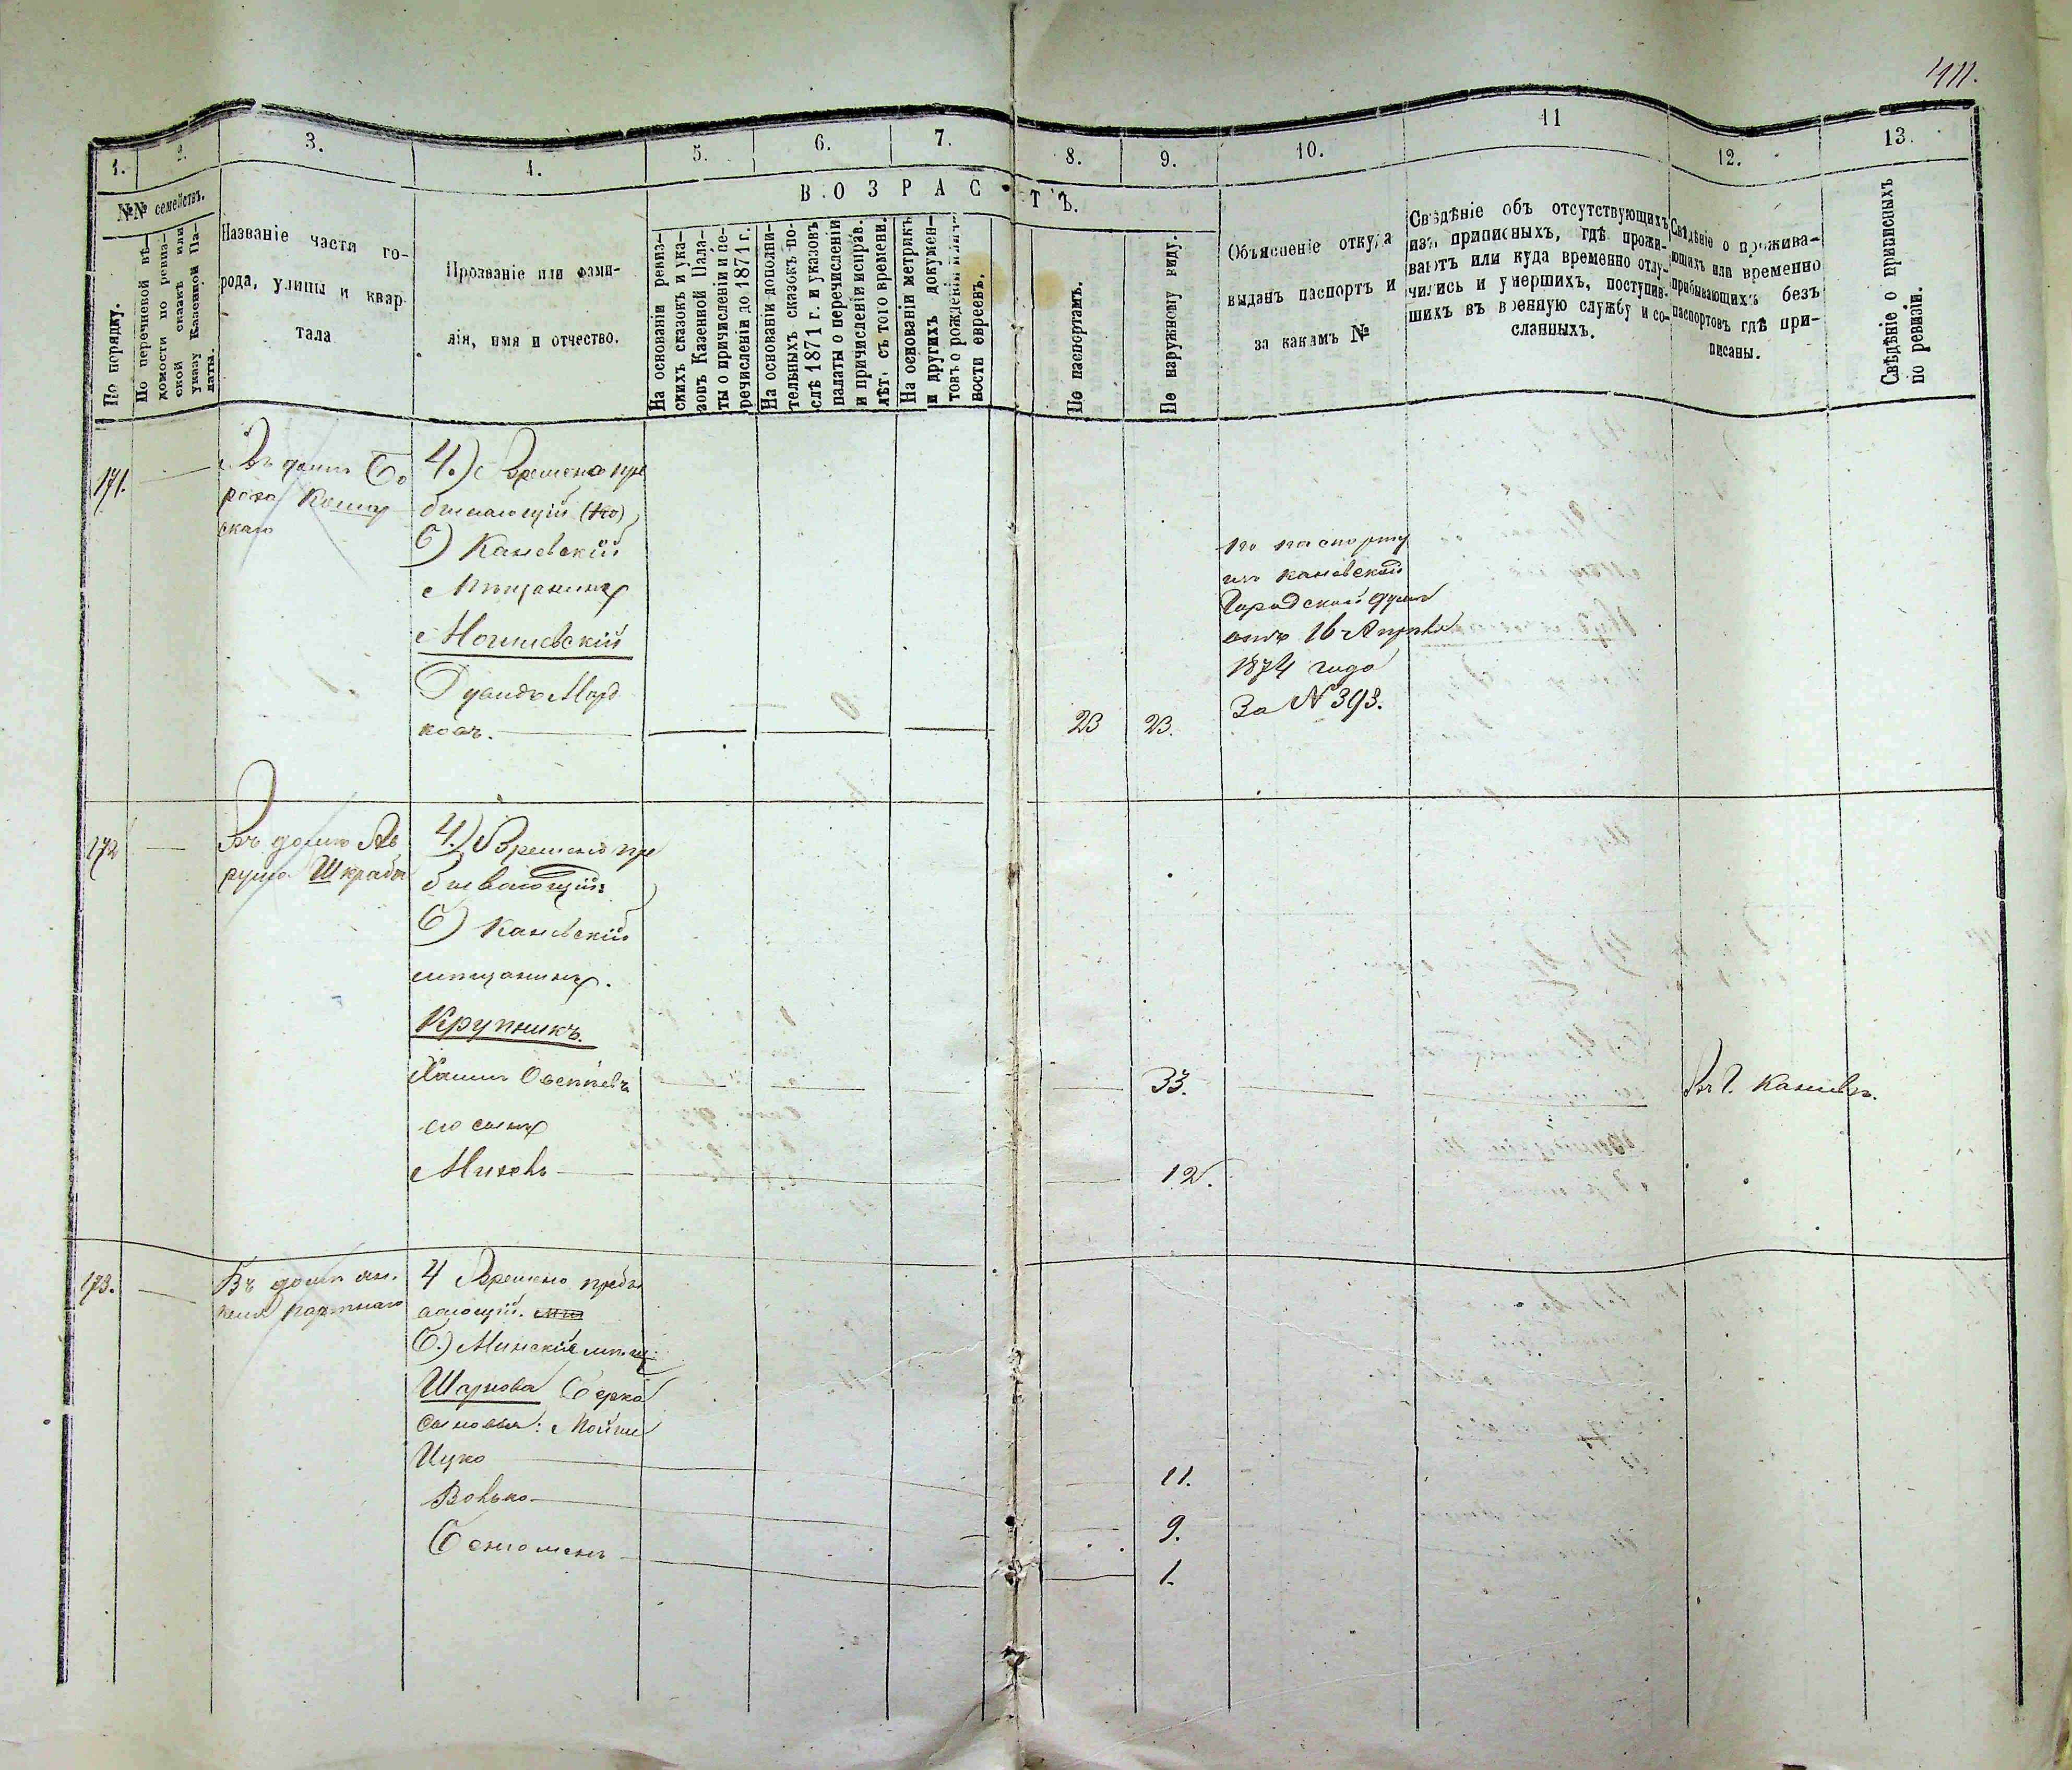 411.
1.
2.
3.
4.
5.
6.
7.
8.
9.
10.
11
12.
13.
№№ семействъ.
В О З Р А С Т Ъ.
По порядку.
По перечневой вѣ-
домости по ревиз-
ской сказкѣ или
указу Казенной Па-
латы.
Названіе части го-
рода, улицы и квар
тала
Прозваніе или фами-
лія, имя и отчество.
На основаніи ревиз-
скихъ сказокъ и ука-
зовъ Казенной Пала-
ты о причисленіи и пе-
речисленіи до 1871 г.
На основаніи дополни-
тельныхъ сказокъ по-
слѣ 1871 г. и указовъ
палаты о перечисленіи
и причисленіи исправ.
лѣт. съ того времени.
На основаніи метрикъ
и другихъ докумен-
товъ о рожденіи
вости евреевъ.
По паспортамъ.
По наружному виду.
Объясненіе откуда
выданъ паспортъ и
за какимъ №
Свѣдѣніе объ отсутствующихъ
изъ приписныхъ, гдѣ прожи-
ваютъ или куда временно отлу-
чились и умершихъ, поступив-
шихъ въ военную службу и со-
сланныхъ.
Свѣдѣніе о прожива-
ющихъ или временно
прибывающихъ безъ
паспортовъ гдѣ при-
писаны.
Свѣдѣніе о приписныхъ
по ревизіи.
171.
Въ домѣ Бо
роха
скаго
4.) Времено пре
бивающій
б) Каневскій
Мѣщанинъ
Морд
ков.
23 23.
по паспорту
изъ Каневской
Городской думы
отъ 16 Апрѣля
1874 года
За № 393.
172
Въ домѣ Ав
рума Шкраба
4.) Времено пре
бивающій
б) Каневскій
мѣщанинъ.
Крупникъ.
Хаимъ
33.
Въ г. Каневѣ.
его сынъ
Михель
12.
173.
Въ домѣ
4 Времено пребы
вающій.
б.) Минскій мѣщ.
Берко
Сыновья: Мойше
Ицко
11.
Волько
9.
Беньоменъ
1.